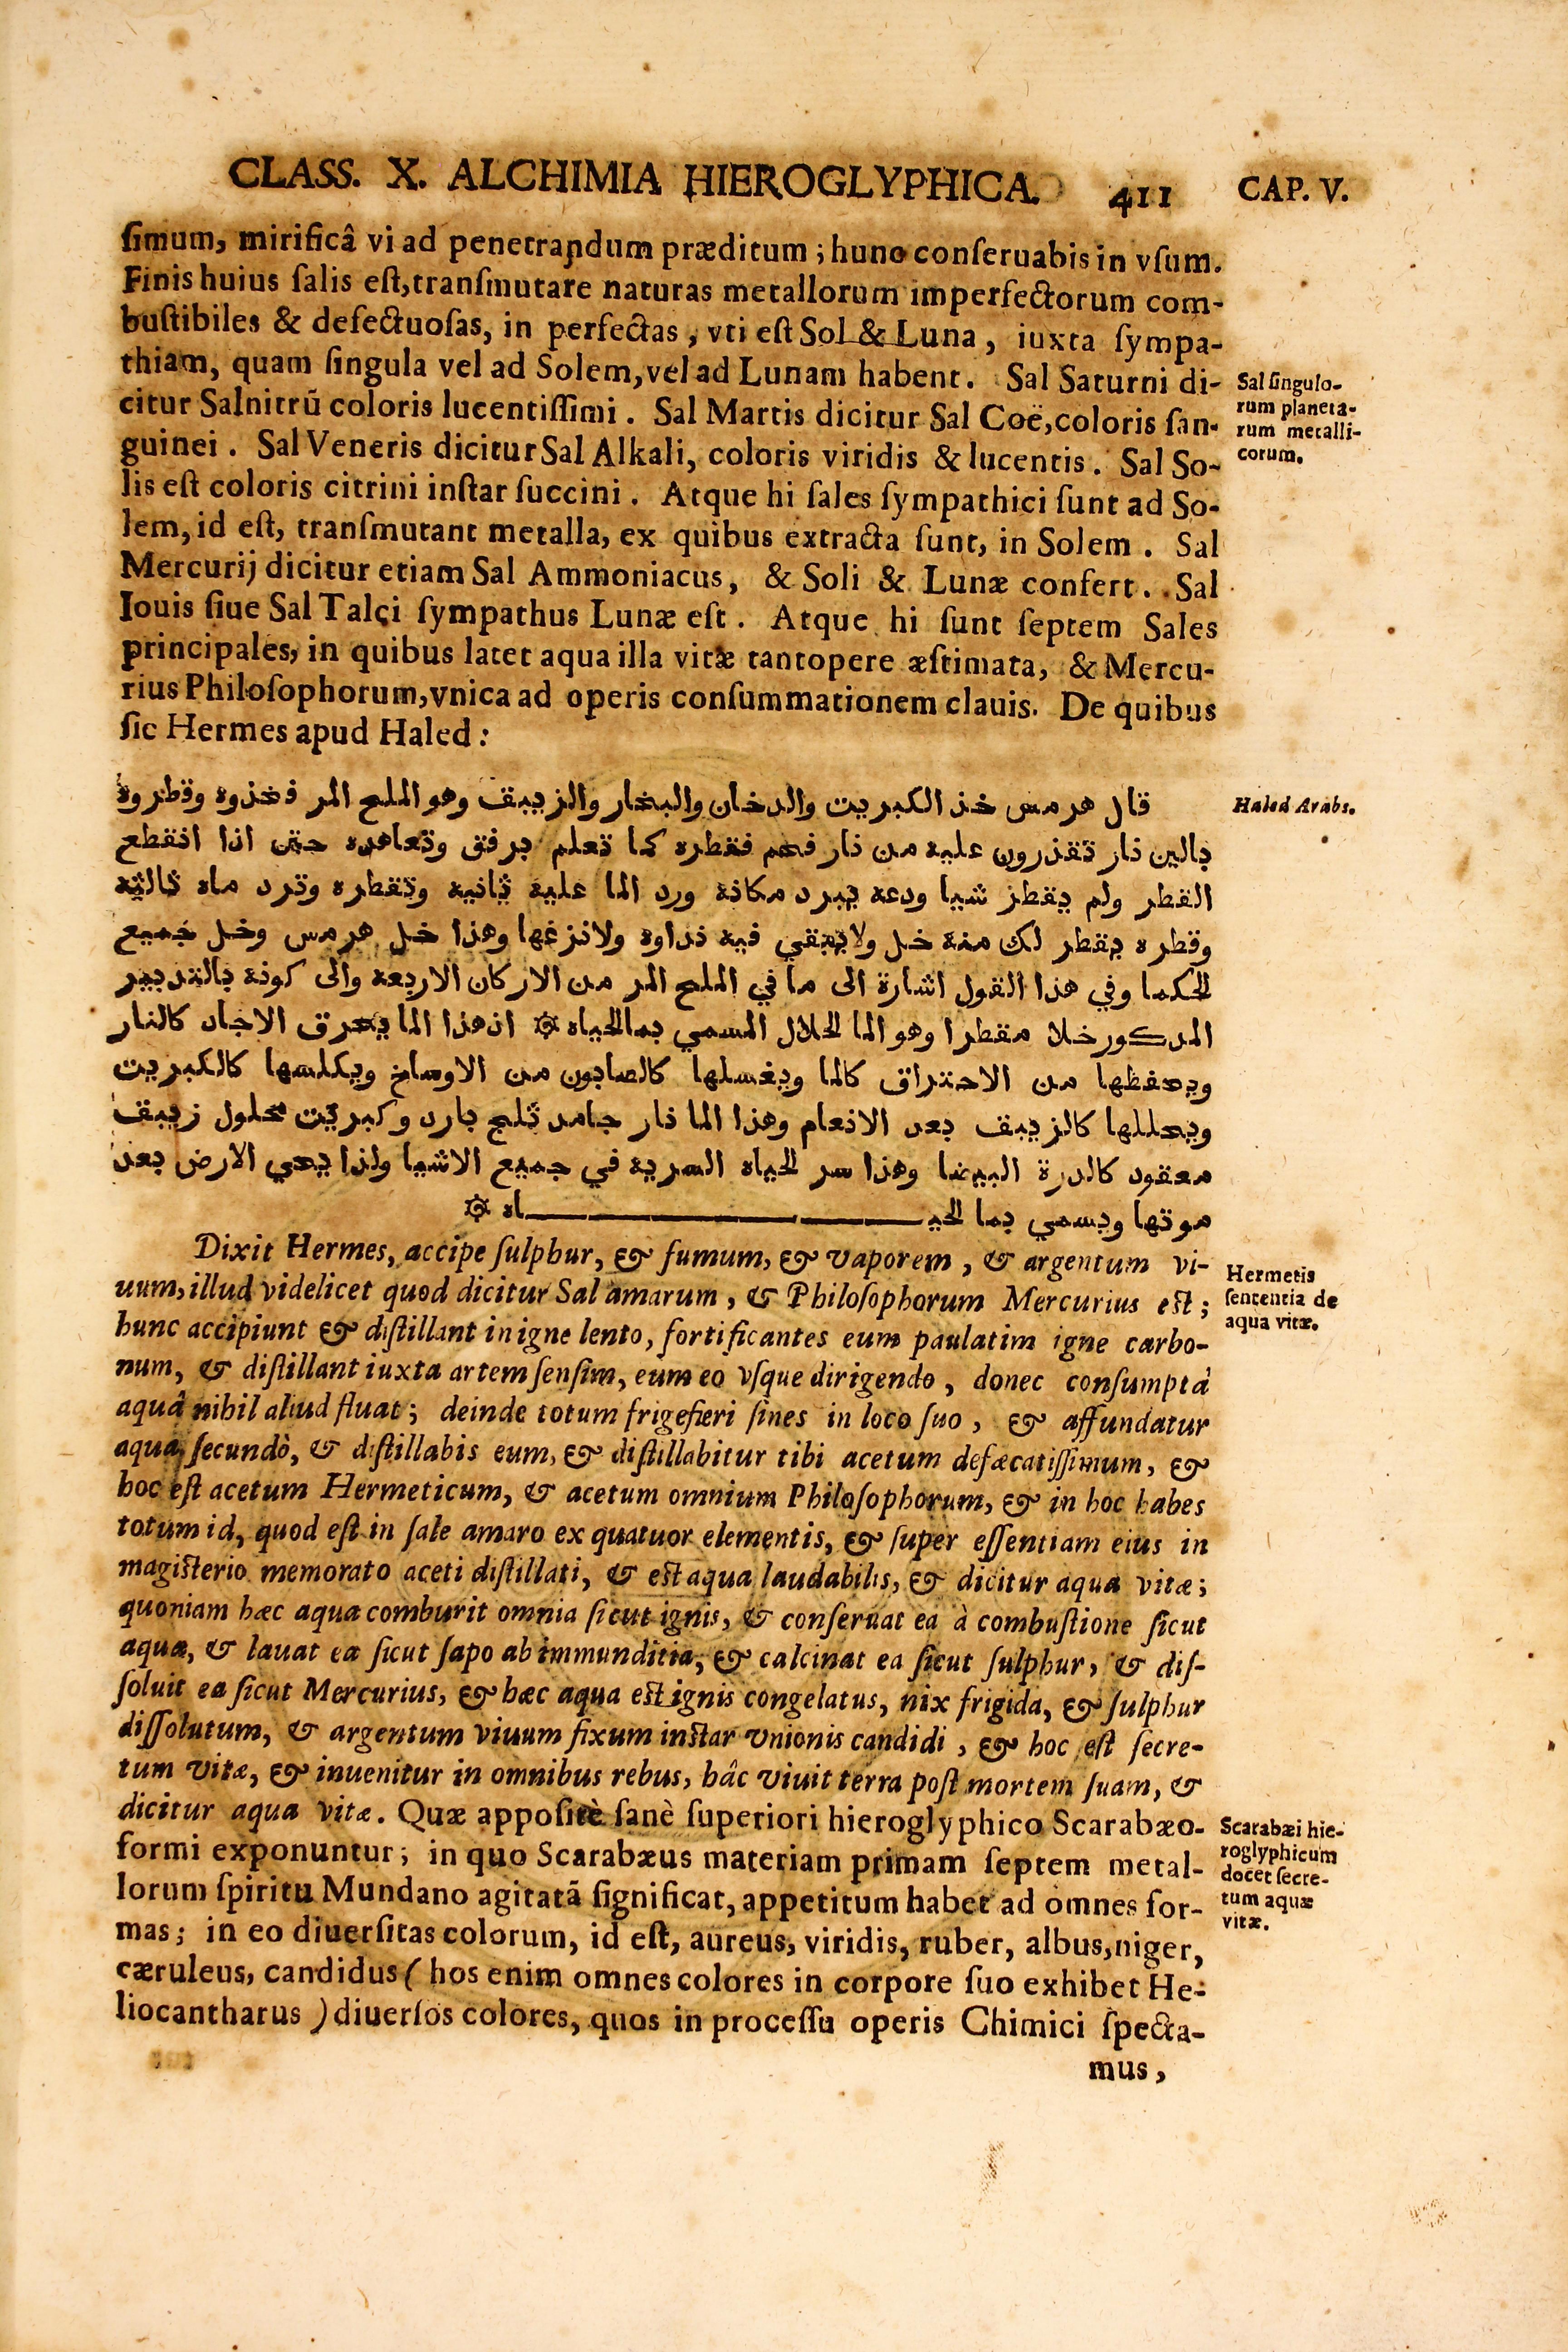 CLASS. X. ALCHIMIA HIEROGLYPHICA. 411 CAP. V.
ſimum, mirificâ vi ad penetrandum præditum; hunc conſeruabis in vſum.
Finis huius ſalis eſt, tranſmutare naturas metallorum imperfectorum com-
buſtibiles & defectuoſas, in perfectas, vti eſt Sol & Luna, iuxta ſympa-
thiam, quam ſingula vel ad Solem, vel ad Lunam habent. Sal Saturni di-
citur Salnitrũ coloris lucentiſſimi. Sal Martis dicitur Sal Coë, coloris ſan-
guinei. Sal Veneris dicitur Sal Alkali, coloris viridis & lucentis. Sal So-
lis eſt coloris citrini inſtar ſuccini. Atque hi ſales ſympathici ſunt ad So-
lem, id eſt, tranſmutant metalla, ex quibus extracta ſunt, in Solem. Sal
Mercurij dicitur etiam Sal Ammoniacus, & Soli & Lunæ confert. Sal
Iouis ſiue Sal Talci ſympathus Lunæ eſt. Atque hi ſunt ſeptem Sales
principales, in quibus latet aqua illa vitæ tantopere æſtimata, & Mercu-
rius Philoſophorum, vnica ad operis conſummationem clauis. De quibus
ſic Hermes apud Haled:
Sal ſingulo-
rum planeta-
rum metalli-
corum.
قال هرمس خذ الكبريت والدخان والبخار والزيبق وهو الملح المر فخذوه وقطروه
بالين نار تقدرون عليه من نار فحم فقطره كما تعلم برفق وتعاهده حتى اذا انقطع
القطر ولم يقطر شيا ودعه يبرد مكانه ورد الما عليه ثانية وتقطره وترد ماه ثالثة
وقطره يقطر لك منه خل ولا يبقي فيه نداوة ولانزعها وهذا خل هرمس وخل جميع
الحكما وفي هذا القول اشارة الى ما في الملح المر من الاركان الاربعه والى كونه بالتدبير
المدكور خلا مقطرا وهو الما الحلال المسمي بما الحياه ۞ ان هذا الما يحرق الاجاد كالنار
ويحفظها من الاحتراق كالما ويغسلها كالصابون من الاوساخ ويكلسها كالكبريت
ويحللها كالزيبق بعد الانعام وهذا الما نار جامد ثلج بارد وكبريت محلول زيبق
معقود كالدرة البيضا وهذا سر الحياه السرية في جميع الاشيا ولذا يحي الارض بعد
موتها ويسمي بما الحيـــــــاه ۞
Haled Arabs.
Dixit Hermes, accipe ſulphur, & fumum, & vaporem, & argentum vi-
uum, illud videlicet quod dicitur Sal amarum, & Philoſophorum Mercurius eſt;
hunc accipiunt & diſtillant in igne lento, fortificantes eum paulatim igne carbo-
num, & diſtillant iuxta artem ſenſim, eum eo vſque dirigendo, donec conſumptà
aquâ nihil aliud fluat; deinde totum frigefieri ſines in loco ſuo, & affundatur
aqua ſecundò, & diſtillabis eum, & diſtillabitur tibi acetum defæcatiſſimum, &
hoc eſt acetum Hermeticum, & acetum omnium Philoſophorum, & in hoc habes
totum id, quod eſt in ſale amaro ex quatuor elementis, & ſuper eſſentiam eius in
magiſterio memorato aceti diſtillati, & eſt aqua laudabilis, & dicitur aqua vitæ;
quoniam hæc aqua comburit omnia ſicut ignis, & conſeruat ea à combuſtione ſicut
aqua, & lauat ea ſicut ſapo ab immunditia, & calcinat ea ſicut ſulphur, & diſ-
ſoluit ea ſicut Mercurius, & hæc aqua eſt ignis congelatus, nix frigida, & ſulphur
diſſolutum, & argentum viuum fixum inſtar vnionis candidi, & hoc eſt ſecre-
tum vitæ, & inuenitur in omnibus rebus, hâc viuit terra poſt mortem ſuam, &
dicitur aqua vitæ. Quæ appoſitè ſanè ſuperiori hieroglyphico Scarabæo-
formi exponuntur; in quo Scarabæus materiam primam ſeptem metal-
lorum ſpiritu Mundano agitatã ſignificat, appetitum habet ad omnes for-
mas; in eo diuerſitas colorum, id eſt, aureus, viridis, ruber, albus, niger,
cæruleus, candidus (hos enim omnes colores in corpore ſuo exhibet He-
liocantharus) diuerſos colores, quos in proceſſu operis Chimici ſpecta-
mus,
Hermetis
ſententia de
aqua vitæ.
Scarabæi hie-
roglyphicum
docet ſecre-
tum aquæ
vitæ.